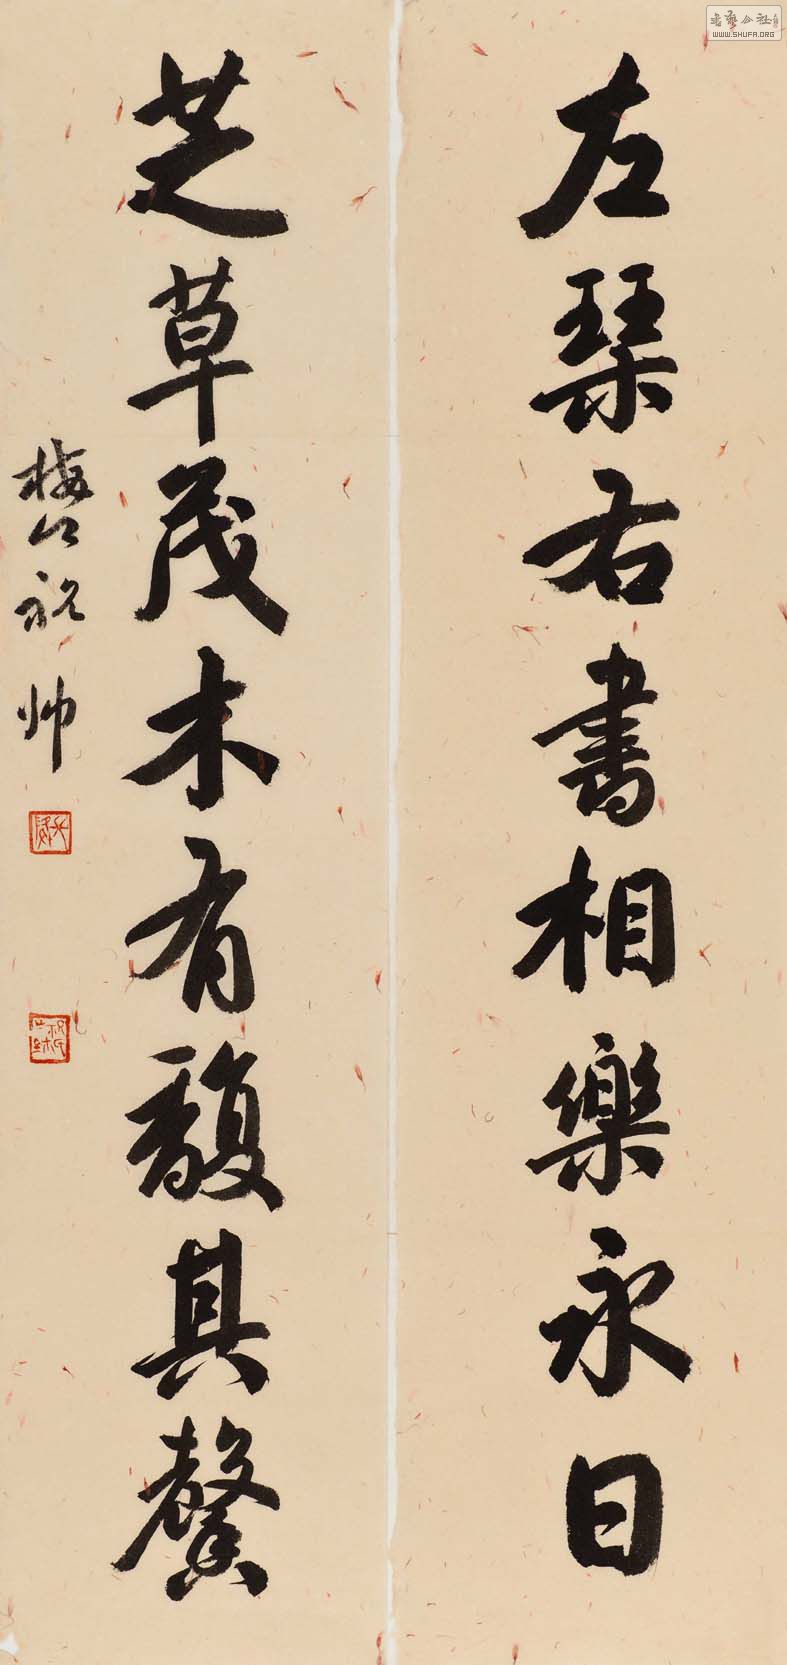 左琴右書相樂永日
芝草茂木有馥其馨
梅公祝帥
書藝公社
WWW.SHUFA.ORG